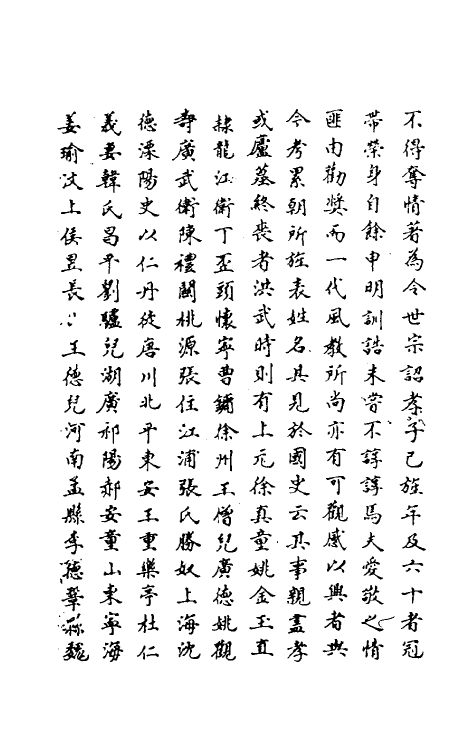 不得奪情著為令世宗詔孝子已旌年及六十者冠
帶榮身自餘申明訓誥未嘗不諄諄焉夫愛敬之情
匪由勸獎而一代風教所尚亦有可觀感以興者與
今考累朝所旌表姓名具見於國史云其事親盡孝
或廬墓終喪者洪武時則有上元徐真童姚金玉直
隸龍江衛丁歪頭懷寧曹鏞徐州王僧兒廣德姚觀
壽廣武衛陳禮關桃源張住江浦張氏勝奴上海沈
德溧陽史以仁丹徒唐川北平東安王重樂亭杜仁
義妻韓氏昌平劉驢兒湖廣祁陽郝安童山東寧海
姜瑜汶上侯昱長山王德兒河南孟縣李德鞏縣魏